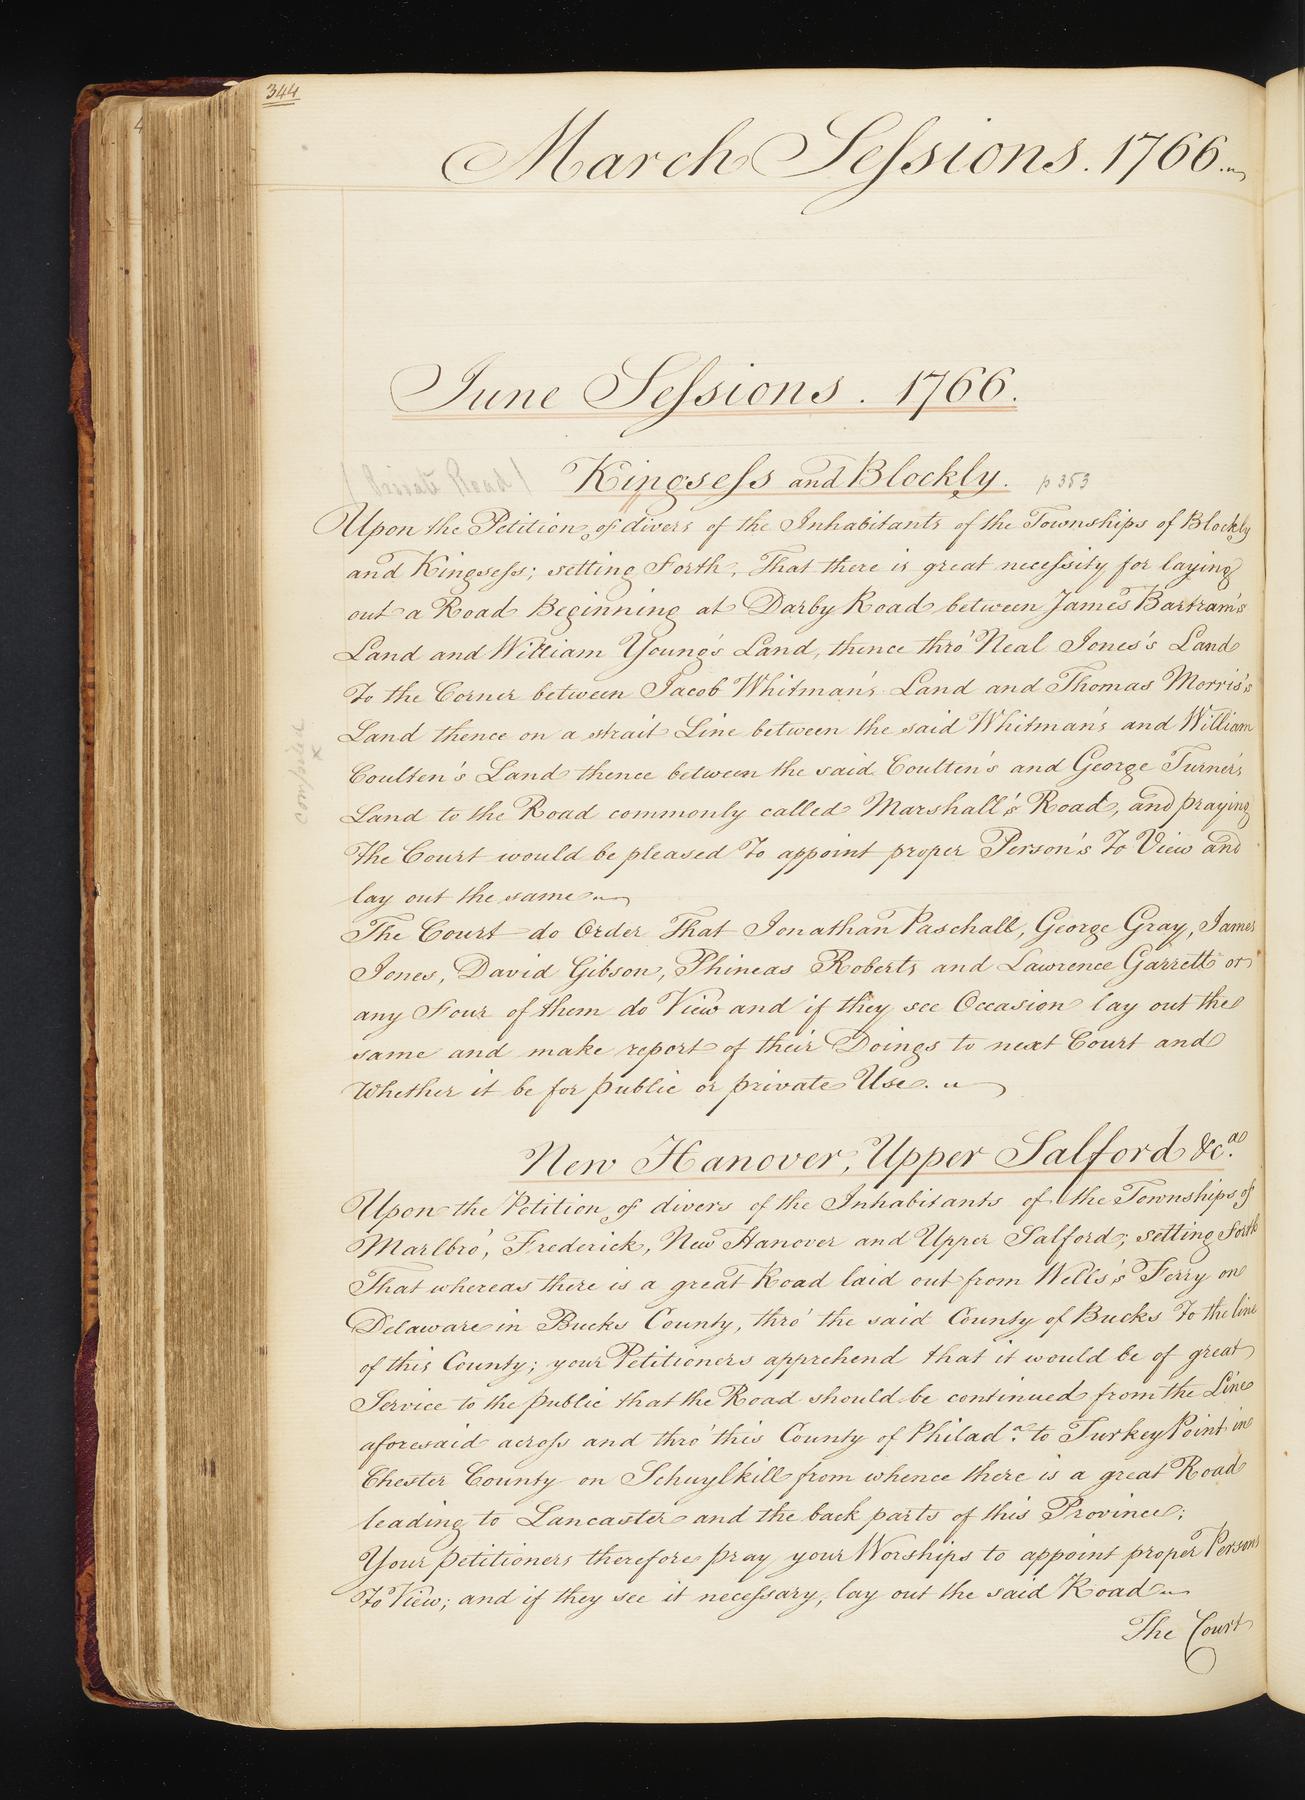 344
4
March Sessions. 1766.
June Sessions. 1766.
( Private Road )
Kingsess and Blockly. p 353
Upon the Petition of divers of the Inhabitants of the Townships of Blockly
and Kingsess; setting Forth, That there is great necessity for laying
out a Road Beginning at Darby Road between James Bartram's
Land and William Young's Land, thence thro' Neal Jones's Land
To the Corner between Jacob Whitman's Land and Thomas Morris's
Land thence on a strait Line between the said Whitman's and William
Coulten's Land thence between the said Coulten's and George Turner's
Land to the Road commonly called Marshall's Road, and praying
the Court would be pleased To appoint proper Person's To View and
lay out the same
The Court do Order That Jonathan Paschall, George Gray, James
Jones, David Gibson, Phineas Roberts and Lawrence Garrett or
any Four of them do View and if they see Occasion lay out the
same and make report of their Doings to next Court and
Whether it be for public or private Use.
x
New Hanover, Upper Salford &c.a
Upon the Petition of divers of the Inhabitants of the Townships of
Marlbro', Frederick, New Hanover and Upper Salford; setting Forth
That whereas there is a great Road laid out from Wells's Ferry on
Delaware in Bucks County, thro' the said County of Bucks To the line
of this County; your Petitioners apprehend that it would be of great
Service to the public that the Road should be continued from the Line
aforesaid across and thro' this County of Philad.a to Turkey Point in
Chester County on Schuylkill from whence there is a great Road
leading to Lancaster and the back parts of this Province;
Your petitioners therefore pray your Worships to appoint proper Persons
To View; and if they see it necessary, lay out the said Road
The Court